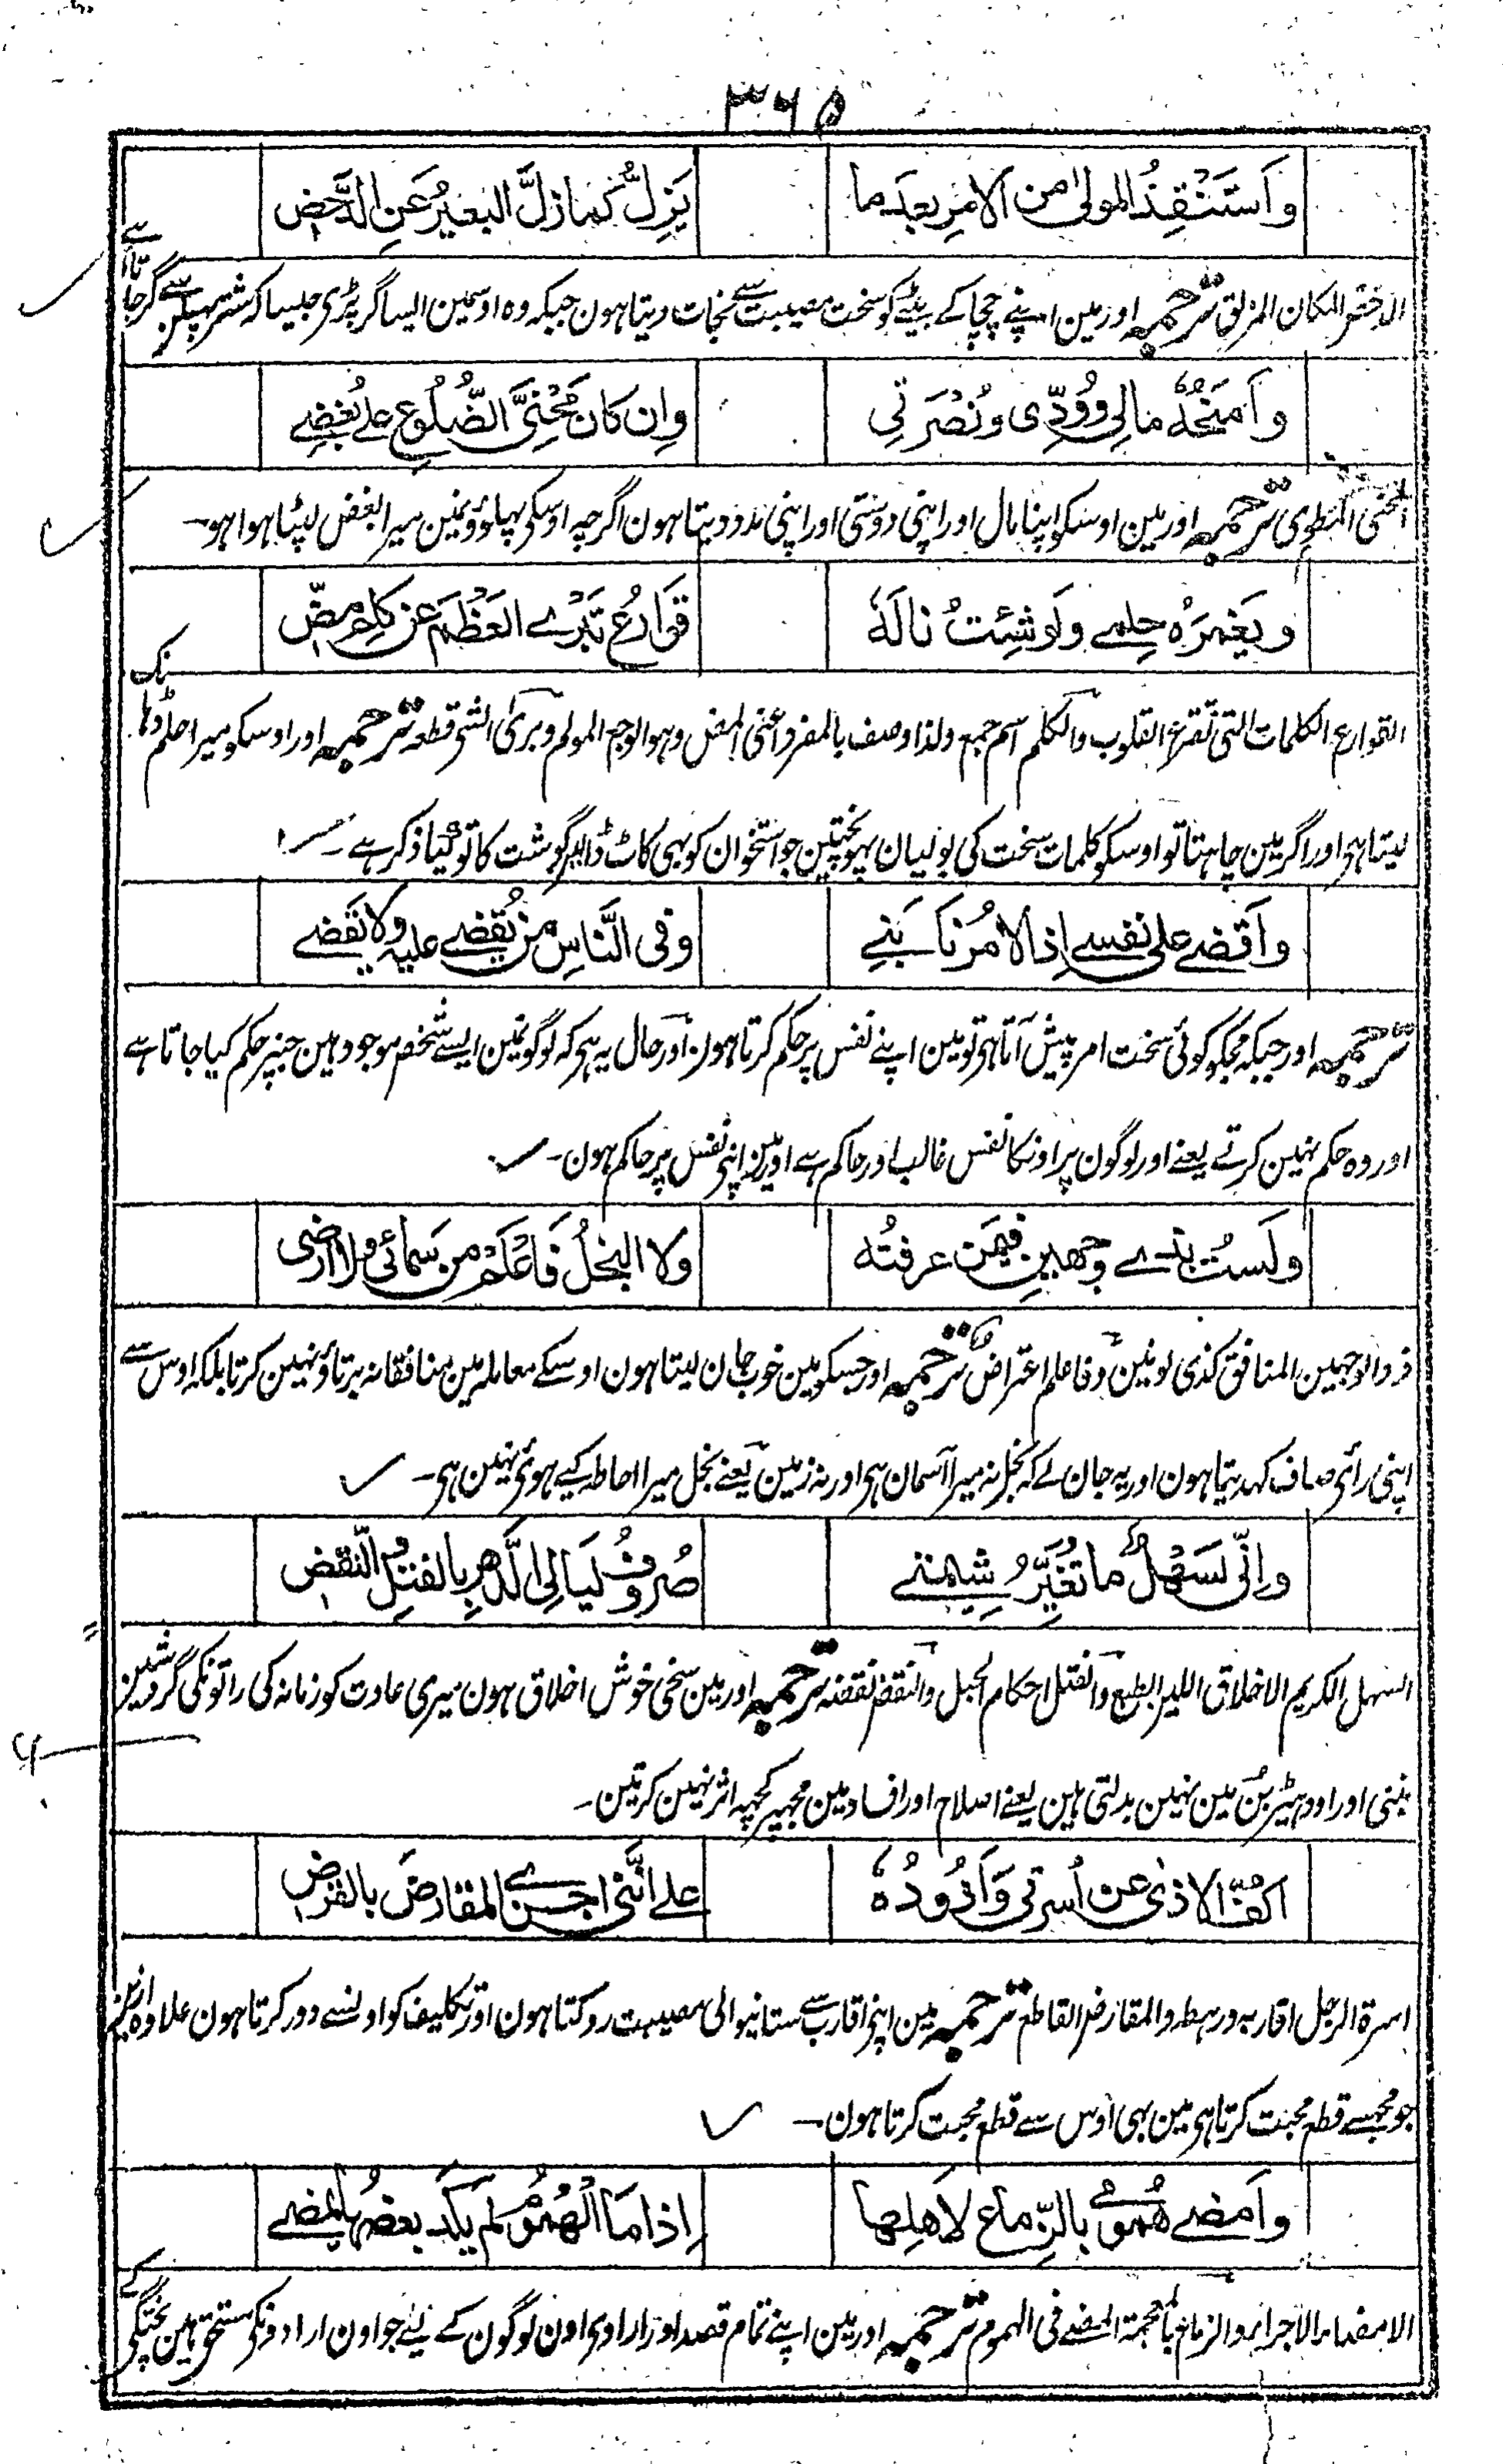 ۳۶۵
واَستَنْقِذُ المولى من الامرِ بعدَ ما یَزِلُّ کما زلَّ البعیرُ عَنِ الدَّحْضِ
الدحض المکان المزلق ترجمہ اور مین اپنے چچا کے بیٹے کو سخت مصیبت سے نجات دیتا ہون جبکہ وہ اوسمین ایسا گر پڑی جیسا کہ شتر پھسلن سے گر جاتا ہے
واَمنَحُہٗ مالِی ووُدِّی ونُصْرَتِی واِن کانَ مَحْنِیَّ الضُّلُوعِ علے بُغضِے
المحنی المنطوی ترجمہ اور مین اوسکو اپنا مال اور اپنی دوستی اور اپنی مدد دیتا ہون اگرچہ اوسکی پہلوؤنمین میرا بغض لپٹا ہوا ہو۔
ویَغمرُہ حِلمے ولَو شِئتُ نالَہٗ قوَارِعُ تَبْرِے العَظْمَ عن کَلِمٍ مضِّ
القوارع الکلمات التی تقرع القلوب والکلم اسم جمع ولذا وصف بالمفرد اعنی المض وہو الوجع المولم وبری الشی قطعہ ترجمہ اور اوسکو میرا حلم ڈہانک
لیتا ہی اور اگر مین چاہتا تو اوسکو کلمات سخت کی بولیان پہونچتین جو استخوان کو بہی کاٹ ڈالین گوشت کا تو کیا ذکر ہے۔
واَقضے علی نفسے اِذا الامرُ نابَنِے وفی النّاسِ من یُقضے علیہ ولا یَقضے
ترجمہ اور جبکہ مجکو کوئی سخت امر پیش آتا ہی تو مین اپنے نفس پر حکم کرتا ہون اور حال یہ ہی کہ لوگونمین ایسے شخص موجود ہین جنپر حکم کیا جاتا ہے
اور وہ حکم نہین کرتے یعنے اور لوگون پر اونکا نفس غالب اور حاکم ہے اور مین اپنی نفس پر حاکم ہون۔
ولَستُ بذے وجھینِ فیمَن عرفتُہ ولا البخلُ فَاعْلَمْ من سَمائی ولا ارضی
ذو الوجہین المنافق کذی لونین وفاعلم اعتراض ترجمہ اور جسکو مین خوب جان لیتا ہون اوسکے معاملہ مین منافقانہ برتاؤ نہین کرتا بلکہ اوس سے
اپنی رائی صاف کہدیتا ہون اور یہ جان لے کہ بخل نہ میرا آسمان ہی اور نہ زمین یعنے بخل میرا احاطہ کیے ہوئی نہین ہی۔
واِنّی لسَھلٌ ما تُغَیِّرُ شِیمتے صُروفُ لیَالِی الدَّھرِ بالفتلِ والنّقضِ
السہل الکریم الاخلاق اللین الطبع والفتل احکام الحبل والنقض نقضہ ترجمہ اور مین سخی خوش اخلاق ہون میری عادت کو زمانہ کی راتونکی گردشین
بننی اور اودہیڑبن مین نہین بدلتی ہین یعنے اصلاح اور افساد مین مجہپر کچہہ اثر نہین کرتین۔
اکُفُّ الاذٰی عن اُسرتی وَاَذُودُہٗ علے انَّنی اجزے المقارضَ بالقرضِ
اسرۃ الرجل اقاربہ ورہطہ والمقارض القاطع ترجمہ مین اپنی اقارب سے ستانیوالی مصیبت روکتا ہون اور تکلیف کو اونسے دور کرتا ہون علاوہ ازین
جو مجہسے قطع محبت کرتا ہی مین بہی اوس سے قطع محبت کرتا ہون۔
واَمضے ھُمومے بالزِّماعِ لاَھلِھا اِذا مَا الھُمُومُ لم یکَد بعضُہا یمضے
الامضاء الاجراء والزماع بالمعجمۃ المضے فی الہموم ترجمہ اور مین اپنے تمام قصد اور ارادی اون لوگون کے لیئے جو اون ارادونکی مستحق ہین پختگی کے